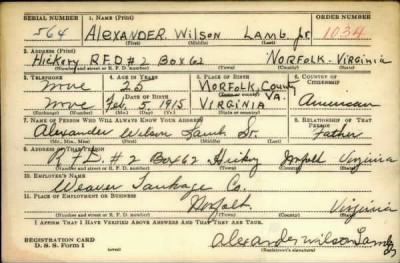 SERIAL NUMBER 1. NAME (Print) ORDER NUMBER
564 ALEXANDER Wilson LAMB Jr. 1034
(First) (Middle) (Last)
2. ADDRESS (Print)
Hickory R.F.D #2 Box 62 NORFOLK - VIRGINIA
(Number and street or R. F. D. number) (Town) (County) (State)
3. TELEPHONE 4. AGE IN YEARS 5. PLACE OF BIRTH 6. COUNTRY OF CITIZENSHIP
None 25 NORFOLK County VA.
DATE OF BIRTH
None Feb. 5, 1915 VIRGINIA American
(Mo.) (Day) (Yr.) (State or country)
7. NAME OF PERSON WHO WILL ALWAYS KNOW YOUR ADDRESS 8. RELATIONSHIP OF THAT PERSON
Alexander Wilson Lamb Sr. Father
(Mr., Mrs., Miss) (First) (Middle) (Last)
9. ADDRESS OF THAT PERSON
R.F.D. #2 Box 62 Hickory Norfolk Virginia
(Number and street or R. F. D. number) (Town) (County) (State)
10. EMPLOYER'S NAME
Weaver Tankage Co.
11. PLACE OF EMPLOYMENT OR BUSINESS
Norfolk Virginia
(Number and street or R. F. D. number) (Town) (County) (State)
I AFFIRM THAT I HAVE VERIFIED ABOVE ANSWERS AND THAT THEY ARE TRUE.
REGISTRATION CARD
D. S. S. Form 1 Alexander Wilson Lamb Jr
(over) (Registrant's signature)